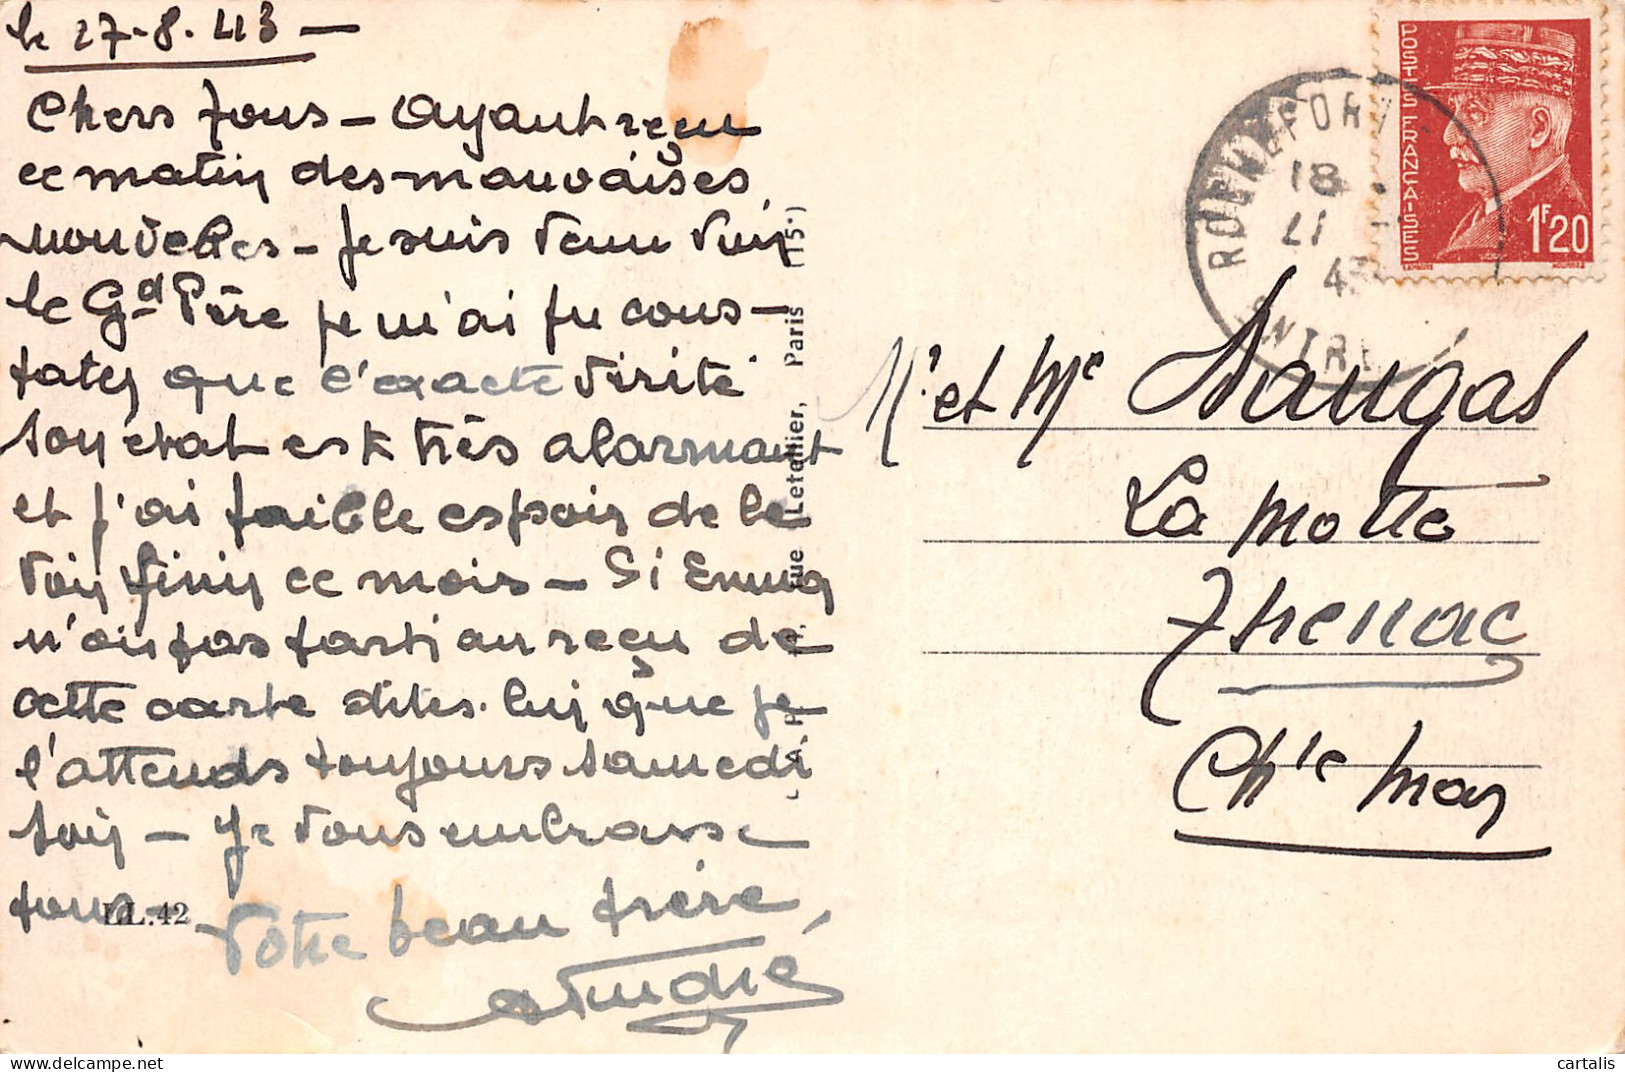 le 27-8.43 —
Chers Tous — Ayant reçu
ce matin des mauvaises
nouvelles — Je suis venu voir
le Gd Père je n'ai pu cons-
tater que l'exacte vérité
son état est très alarmant
et j'ai faible espoir de le
voir finir ce mois — Si Emma
n'est pas parti au reçu de
cette carte dites-lui que je
l'attends toujours samedi
soir — Je vous embrasse
tous
Votre beau frère
André
LL.42
A. P., rue Letellier, Paris (15e)
ROCHEFORT
18
27
43
POSTES FRANÇAISES
1F20
Mr et Me Daugas
La Motte
Thenac
Chte Mar
cartalis